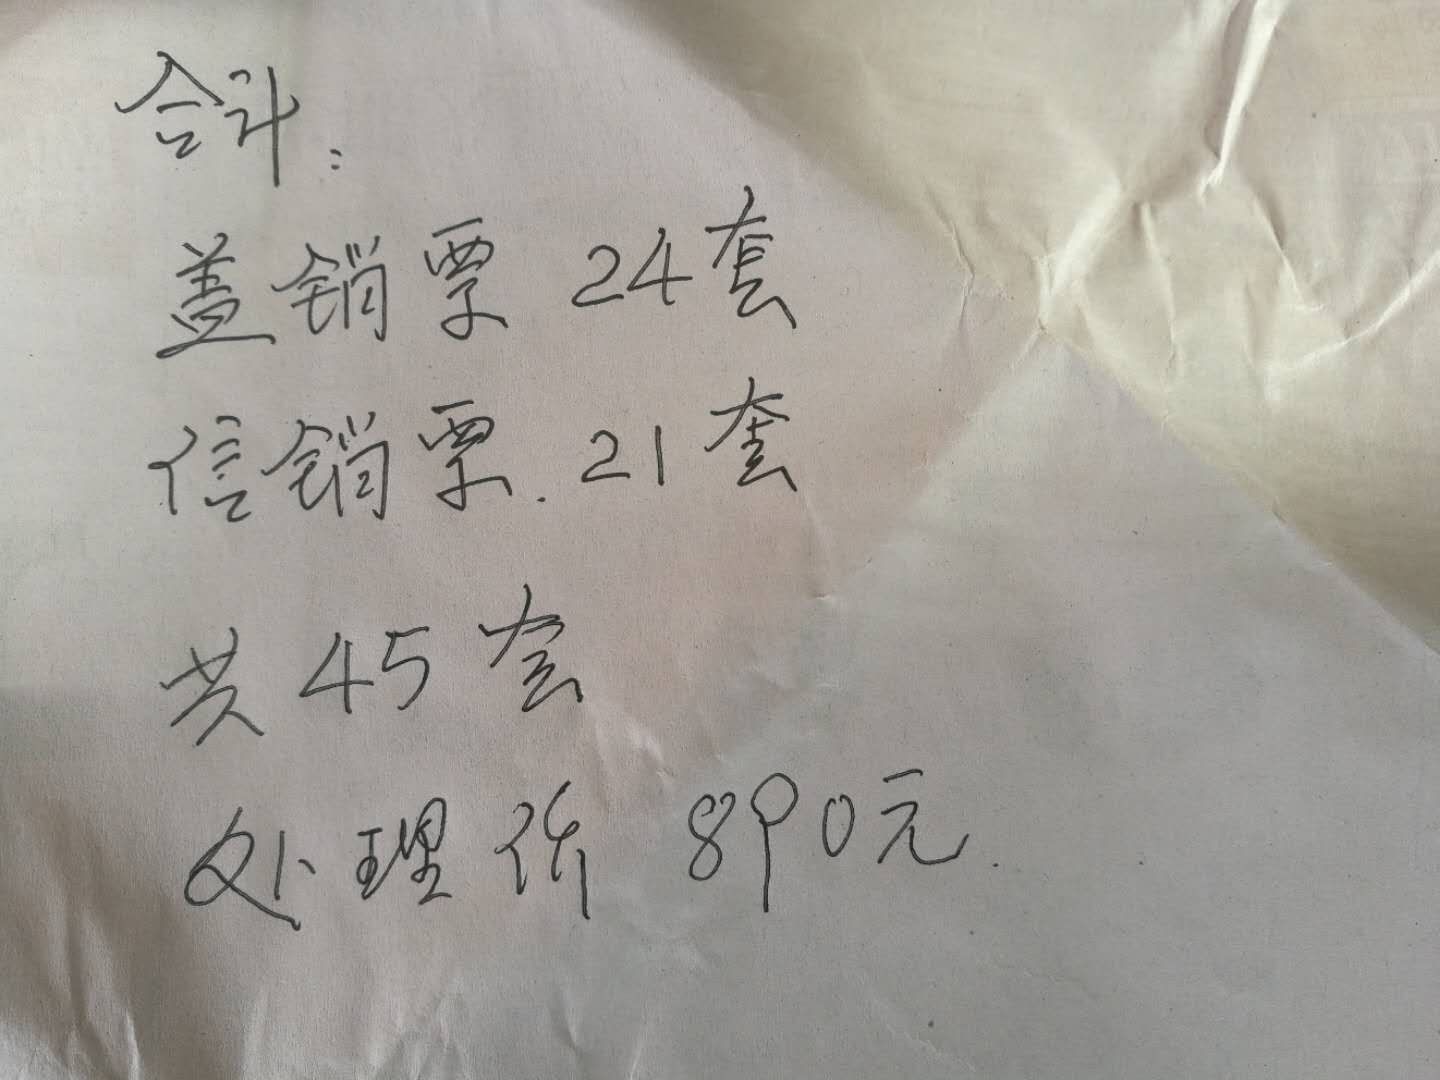 合计:
盖销票 24套
信销票. 21套
共45套
处理价 890元.